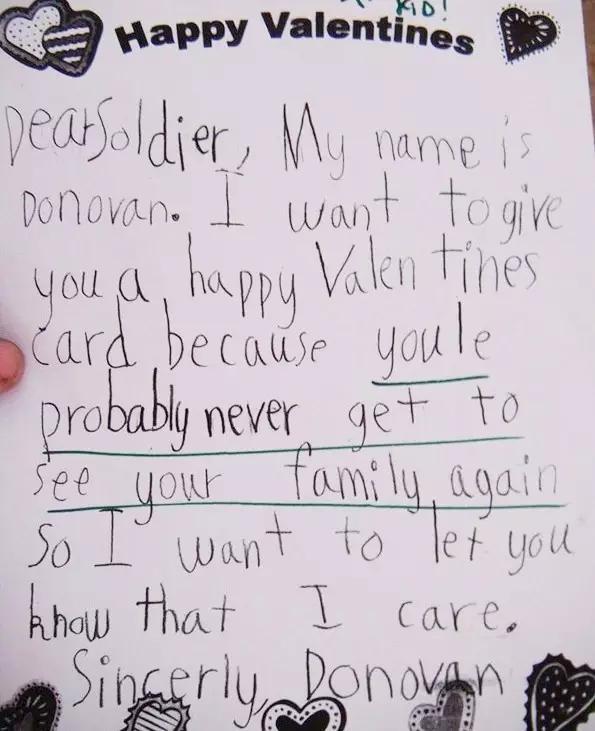 KID!
Happy Valentines
Dear Soldier, My name is
Donovan. I want to give
you a happy Valentines
card because youle
probably never get to
see your family again
So I want to let you
know that I care.
Sincerly, Donovan